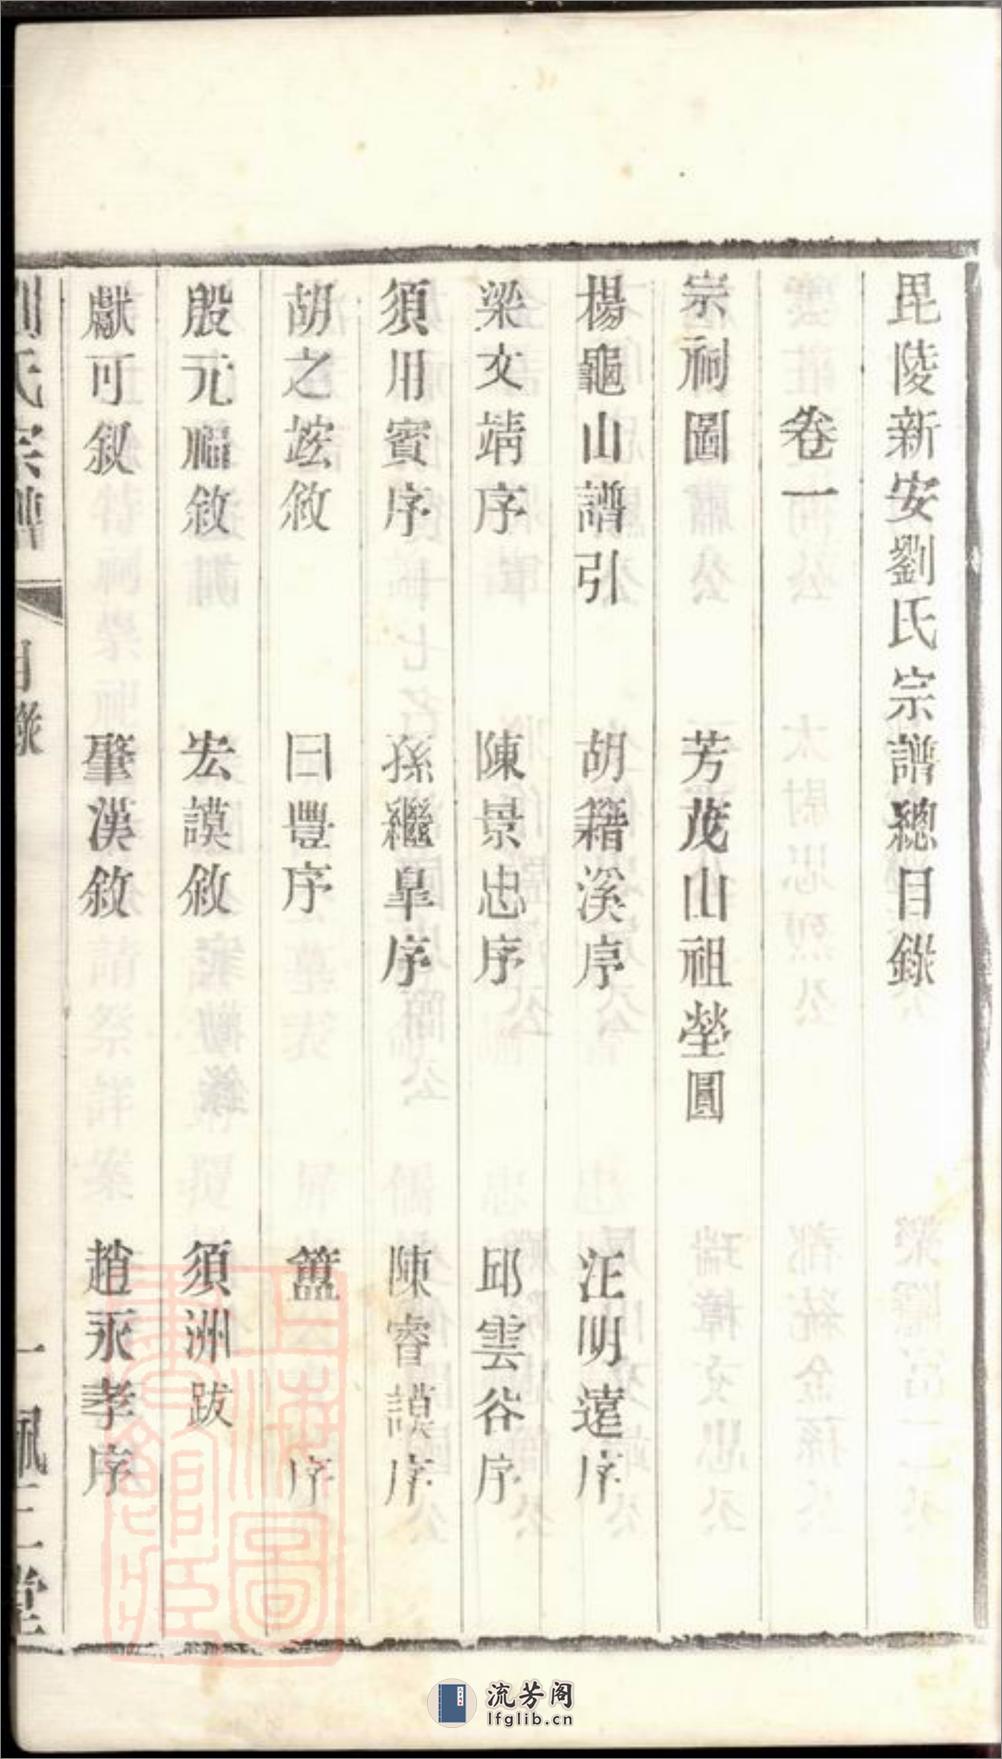 毘陵新安劉氏宗譜總目錄
卷一
宗祠圖 芳茂山祖塋圓
楊龜山譜引 胡籍溪序 汪明遠序
梁文靖序 陳景忠序 邱雲谷序
須用賓序 孫繼皐序 陳睿謨序
胡之竤敘 曰豐序 簠 序
殷元福敘 宏謨敘 須洲跋
獻可叙 肇漢敘 趙永孝序
劉氏宗譜 目錄 一 佩三堂
上海圖書館藏
流芳阁
lfglib.cn